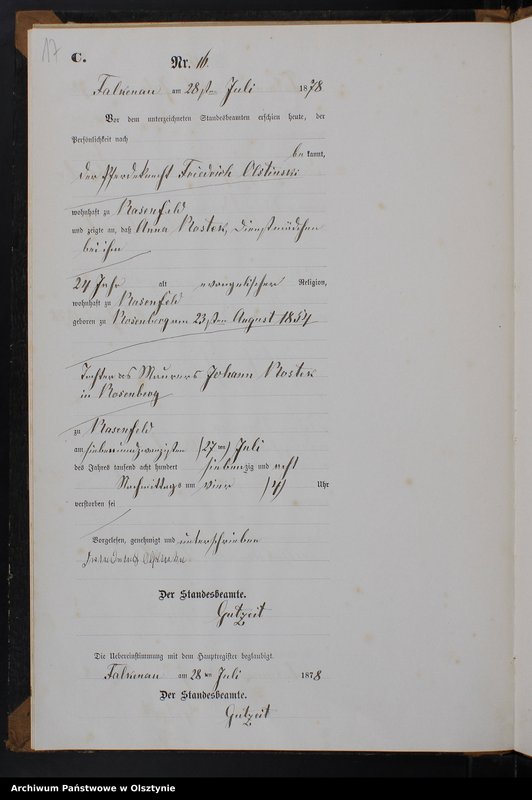 17
C.
Nr. 16.
Falkenau am 28sten Juli 1878
Vor dem unterzeichneten Standesbeamten erschien heute, der
Persönlichkeit nach
be kannt,
der Pferdeknecht Friedrich
wohnhaft zu Rosenfeld
und zeigte an, daß Anna Koster, Dienstmädchen
bei ihm
24 Jahr alt evangelischer Religion,
wohnhaft zu Rosenfeld
geboren zu Rosenberg am 23sten August 1854
Tochter des Maurers Johann Koster
in Rosenberg
zu Rosenfeld
am siebenundzwanzigsten (27ten) Juli
des Jahres tausend acht hundert siebenzig und acht
Nachmittags um vier (4) Uhr
verstorben sei
Vorgelesen, genehmigt und unterschrieben
Der Standesbeamte.
Gutzeit
Die Uebereinstimmung mit dem Hauptregister beglaubigt.
Falkenau am 28ten Juli 1878
Der Standesbeamte.
Gutzeit
Archiwum Państwowe w Olsztynie